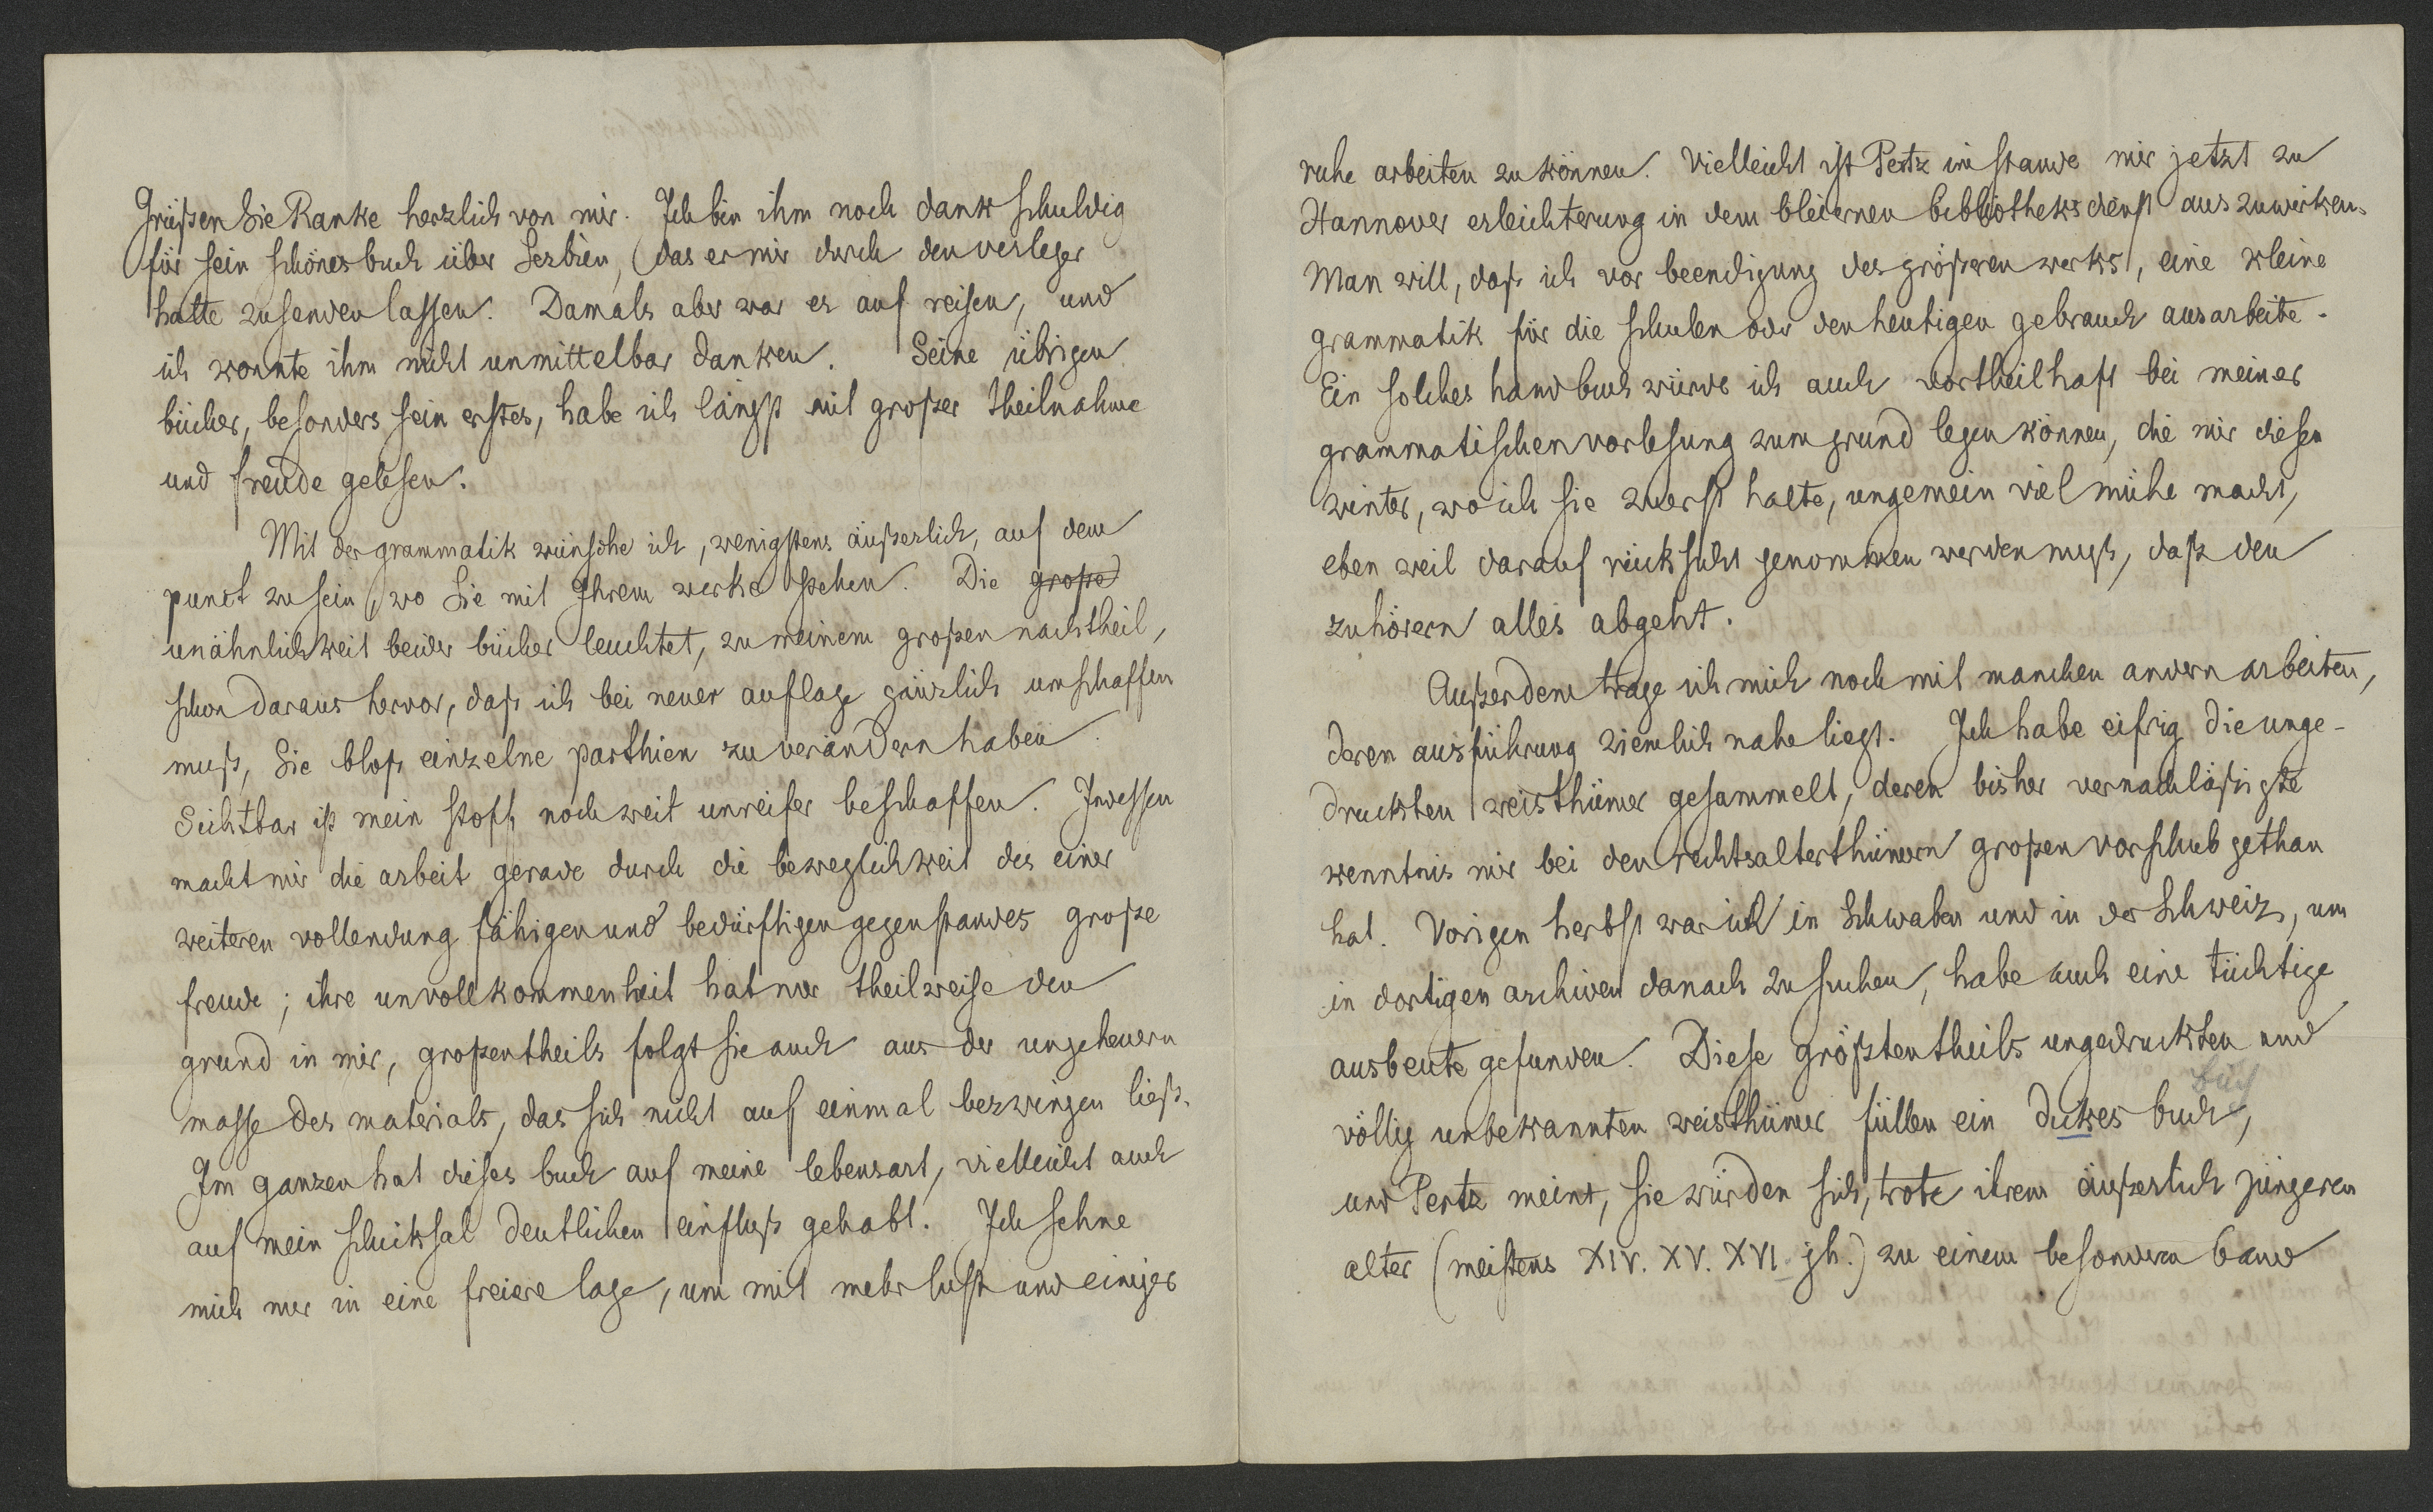 Grüßen Sie Ranke herzlich von mir. Ich bin ihm noch dank schuldig
für sein schönes buch über Serbien, das er mir durch den verleger
hatte zusenden lassen. Damals aber war er auf reisen, und
ich konnte ihm nicht unmittelbar danken. Seine übrigen
bücher, besonders sein erstes, habe ich längst mit großer theilnahme
und freude gelesen.
Mit der grammatik wünsche ich, wenigstens äußerlich, auf dem
punct zu sein, wo Sie mit Ihrem werke stehen. Die große
unähnlichkeit beider bücher leuchtet, zu meinem großen nachtheil,
schon daraus hervor, daß ich bei neuer auflage gänzlich umschaffen
muß, Sie bloß einzelne parthien zu verändern haben.
Sichtbar ist mein stoff noch weit unreifer beschaffen. Indessen
macht mir die arbeit gerade durch die beweglichkeit des einer
weiteren vollendung fähigen und bedürftigen gegenstandes große
freude; ihre unvollkommenheit hat nur theilweise den
grund in mir, großentheils folgt sie auch aus der ungeheuern
masse des materials, das sich nicht auf einmal bezwingen ließ.
Im ganzen hat dieses buch auf meine lebensart, vielleicht auch
auf mein schicksal deutlichen einfluß gehabt. Ich sehne
mich nur in eine freiere lage, um mit mehr lust und einiger
ruhe arbeiten zu können. Vielleicht ist Pertz im stande mir jetzt zu
Hannover erleichterung in dem bleiernen bibliotheksdienst auszuwirken.
Man will, daß ich vor beendigung des größeren werks, eine kleine
grammatik für die schulen oder den heutigen gebrauch ausarbeite.
Ein solches handbuch würde ich auch vortheilhaft bei meiner
grammatischen vorlesung zum grund legen können, die mir diesen
winter, wo ich sie zuerst halte, ungemein viel mühe macht,
eben weil darauf rücksicht genommen werden muß, daß den
zuhörern alles abgeht.
Außerdem trage ich mich noch mit manchen andern arbeiten,
deren ausführung ziemlich nahe liegt. Ich habe eifrig die unge-
druckten weisthümer gesammelt, deren bisher vernachläßigte
kenntnis mir bei den rechtsalterthümern großen vorschub gethan
hat. Vorigen herbst war ich in Schwaben und in der Schweiz, um
in dortigen archiven danach zu suchen, habe auch eine tüchtige
ausbeute gefunden. Diese größtentheils ungedruckten und
völlig unbekannten weisthümer füllen ein dickes buch,
und Pertz meint, sie würden sich, trotz ihrem äußerlich jüngeren
alter (meistens XIV. XV. XVI jh.) zu einem besondern band